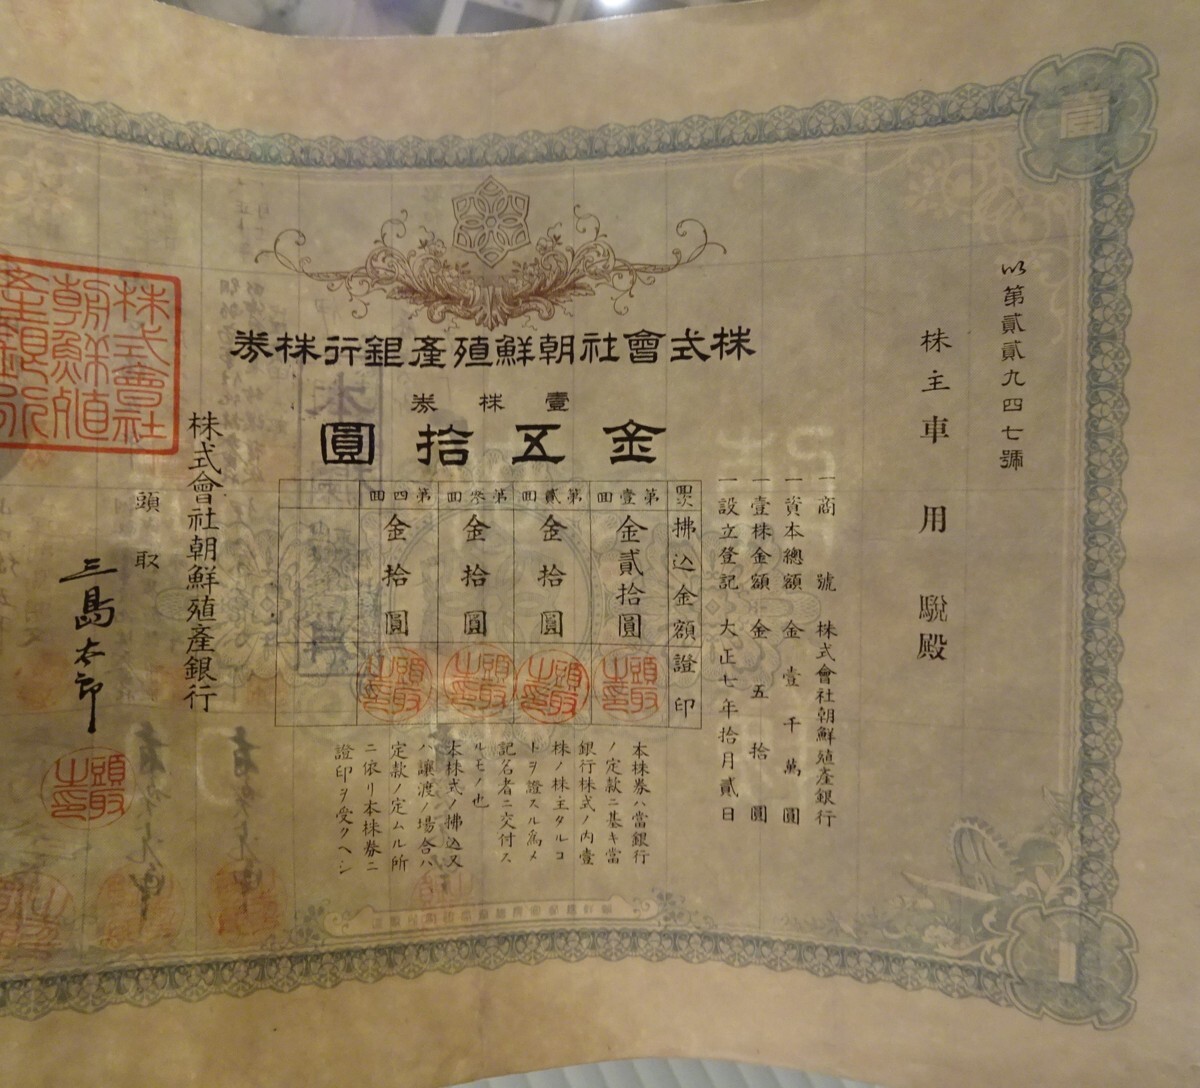 壹
い第貳貳九四七號
株主車用駿殿
株式會社朝鮮殖產銀行株券
壹株券
金五拾圓
一商號 株式會社朝鮮殖產銀行
一資本總額 金壹千萬圓
一壹株金額 金五拾圓
一設立登記 大正七年拾月貳日
回次 拂込金額 證印
第壹回 金貳拾圓 頭取之印
第貳回 金拾圓 頭取之印
第叄回 金拾圓 頭取之印
第四回 金拾圓 頭取之印
本株券ハ當銀行
ノ定款ニ基キ當
銀行株式ノ內壹
株ノ株主タルコ
トヲ證スル爲メ
記名者ニ交付ス
ルモノ也
本株式ノ拂込又
ハ讓渡ノ場合ハ
定款ノ定ムル所
ニ依リ本株券ニ
證印ヲ受クヘシ
株式會社朝鮮殖產銀行
頭取
三島太郎
頭取之印
株式會社
朝鮮殖
產銀行
1